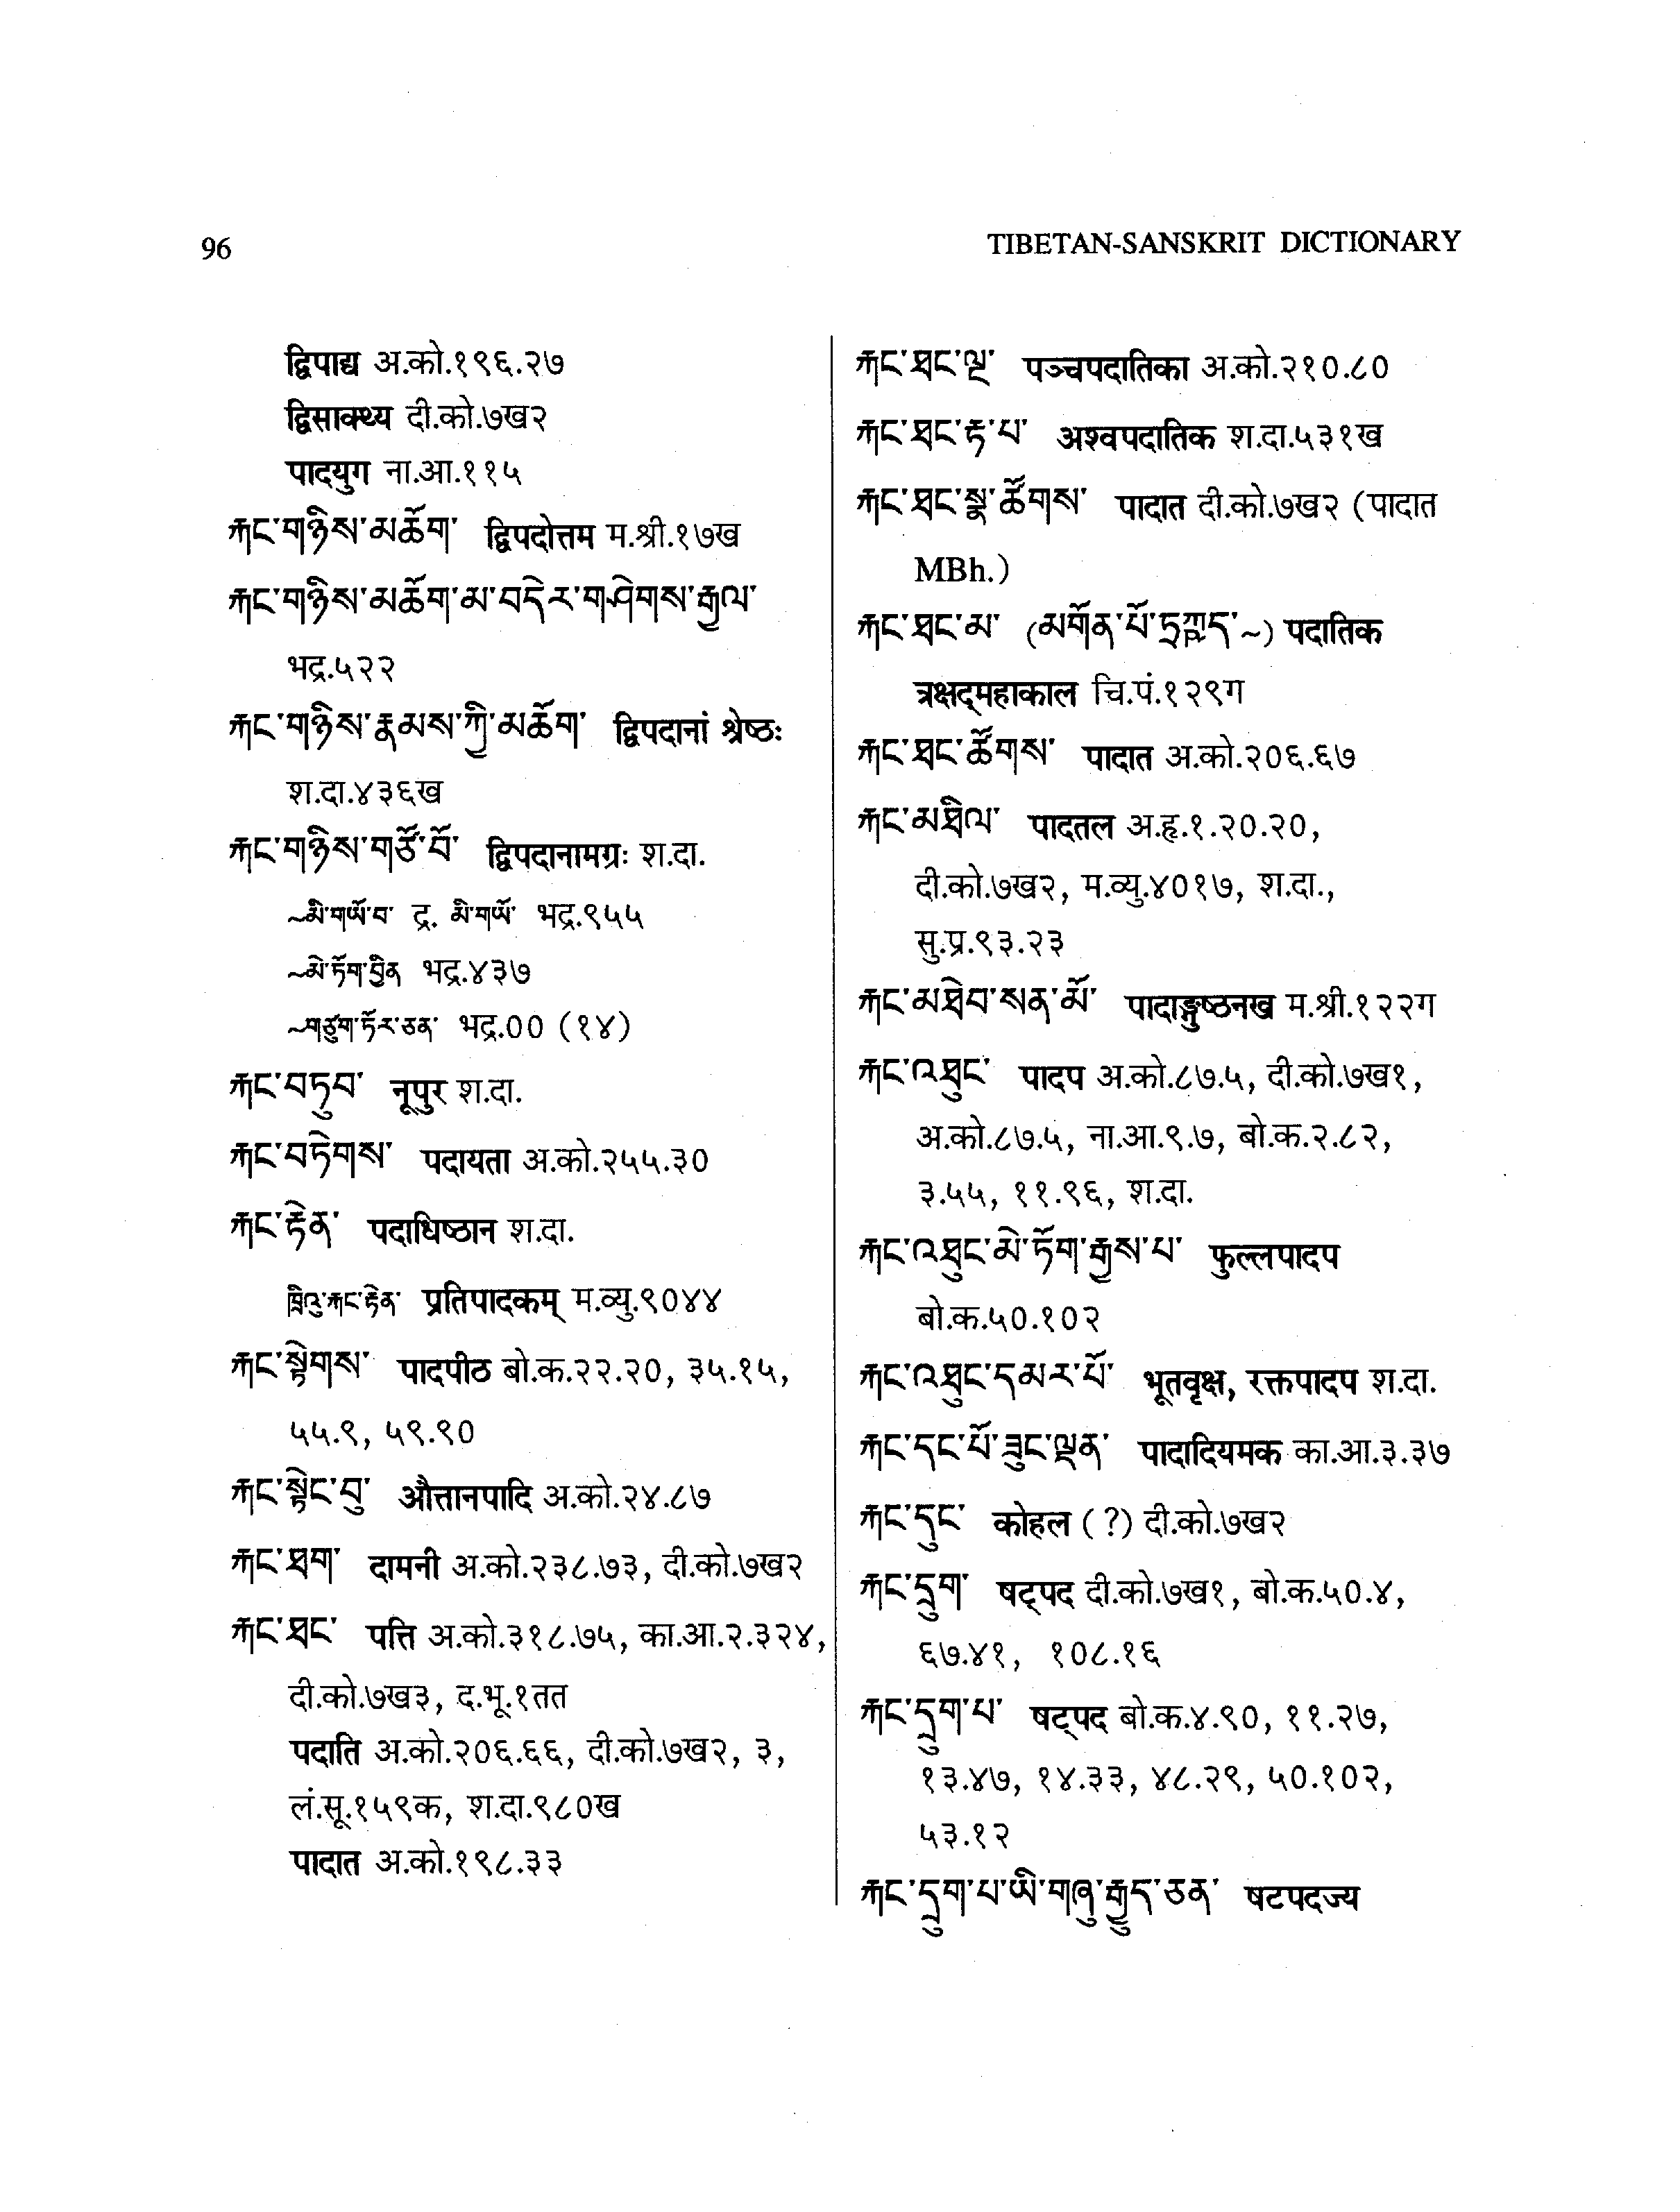 96
TIBETAN-SANSKRIT DICTIONARY
द्विपाद्य अ.को.१९६.२७
द्विसाक्थ्य दी.को.७ख२
पादयुग ना.आ.११५
རྐང་གཉིས་མཆོག་ द्विपदोत्तम म.श्री.१७ख
རྐང་གཉིས་མཆོག་མ་བདེར་གཤེགས་རྒྱལ་
भद्र.५२२
རྐང་གཉིས་རྣམས་ཀྱི་མཆོག་ द्विपदानां श्रेष्ठः
श.दा.४३६ख
རྐང་གཉིས་གཙོ་བོ་ द्विपदानामग्रः श.दा.
~མི་གཡོ་བ་ द्र. མི་གཡོ་ भद्र.९५५
~མེ་ཏོག་བྱིན भद्र.४३७
~གཙུག་ཏོར་ཅན་ भद्र.00 (१४)
རྐང་བཏུབ་ नूपुर श.दा.
རྐང་བཏེགས་ पदायता अ.को.२५५.३०
རྐང་རྟེན་ पदाधिष्ठान श.दा.
ཁྲིའུ་རྐང་རྟེན་ प्रतिपादकम् म.व्यु.९०४४
རྐང་སྟེགས་ पादपीठ बो.क.२२.२०, ३५.१५,
५५.९, ५९.९०
རྐང་སྟེང་བུ་ औत्तानपादि अ.को.२४.८७
རྐང་ཐག་ दामनी अ.को.२३८.७३, दी.को.७ख२
རྐང་ཐང་ पत्ति अ.को.३१८.७५, का.आ.२.३२४,
दी.को.७ख३, द.भू.१तत
पदाति अ.को.२०६.६६, दी.को.७ख२, ३,
लं.सू.१५९क, श.दा.९८०ख
पादात अ.को.१९८.३३
རྐང་ཐང་ལྔ་ पञ्चपदातिका अ.को.२१०.८०
རྐང་ཐང་རྟ་པ་ अश्वपदातिक श.दा.५३१ख
རྐང་ཐང་སྣ་ཚོགས་ पादात दी.को.७ख२ (पादात
MBh.)
རྐང་ཐང་མ་ (མགོན་པོ་ཏྲཀྵད་~) पदातिक
त्रक्षद्महाकाल चि.पं.१२९ग
རྐང་ཐང་ཚོགས་ पादात अ.को.२०६.६७
རྐང་མཐིལ་ पादतल अ.हृ.१.२०.२०,
दी.को.७ख२, म.व्यु.४०१७, श.दा.,
सु.प्र.९३.२३
རྐང་མཐེབ་སེན་མོ་ पादाङ्गुष्ठनख म.श्री.१२२ग
རྐང་འཐུང་ पादप अ.को.८७.५, दी.को.७ख१,
अ.को.८७.५, ना.आ.९.७, बो.क.२.८२,
३.५५, ११.९६, श.दा.
རྐང་འཐུང་མེ་ཏོག་རྒྱས་པ་ फुल्लपादप
बो.क.५०.१०२
རྐང་འཐུང་དམར་པོ་ भूतवृक्ष, रक्तपादप श.दा.
རྐང་དང་པོ་ཟུང་ལྡན་ पादादियमक का.आ.३.३७
རྐང་དུང་ कोहल (?) दी.को.७ख२
རྐང་དྲུག་ षट्पद दी.को.७ख१, बो.क.५०.४,
६७.४१, १०८.१६
རྐང་དྲུག་པ་ षट्पद बो.क.४.९०, ११.२७,
१३.४७, १४.३३, ४८.२९, ५०.१०२,
५३.१२
རྐང་དྲུག་པ་ཡི་གཞུ་རྒྱུད་ཅན་ षटपदज्य